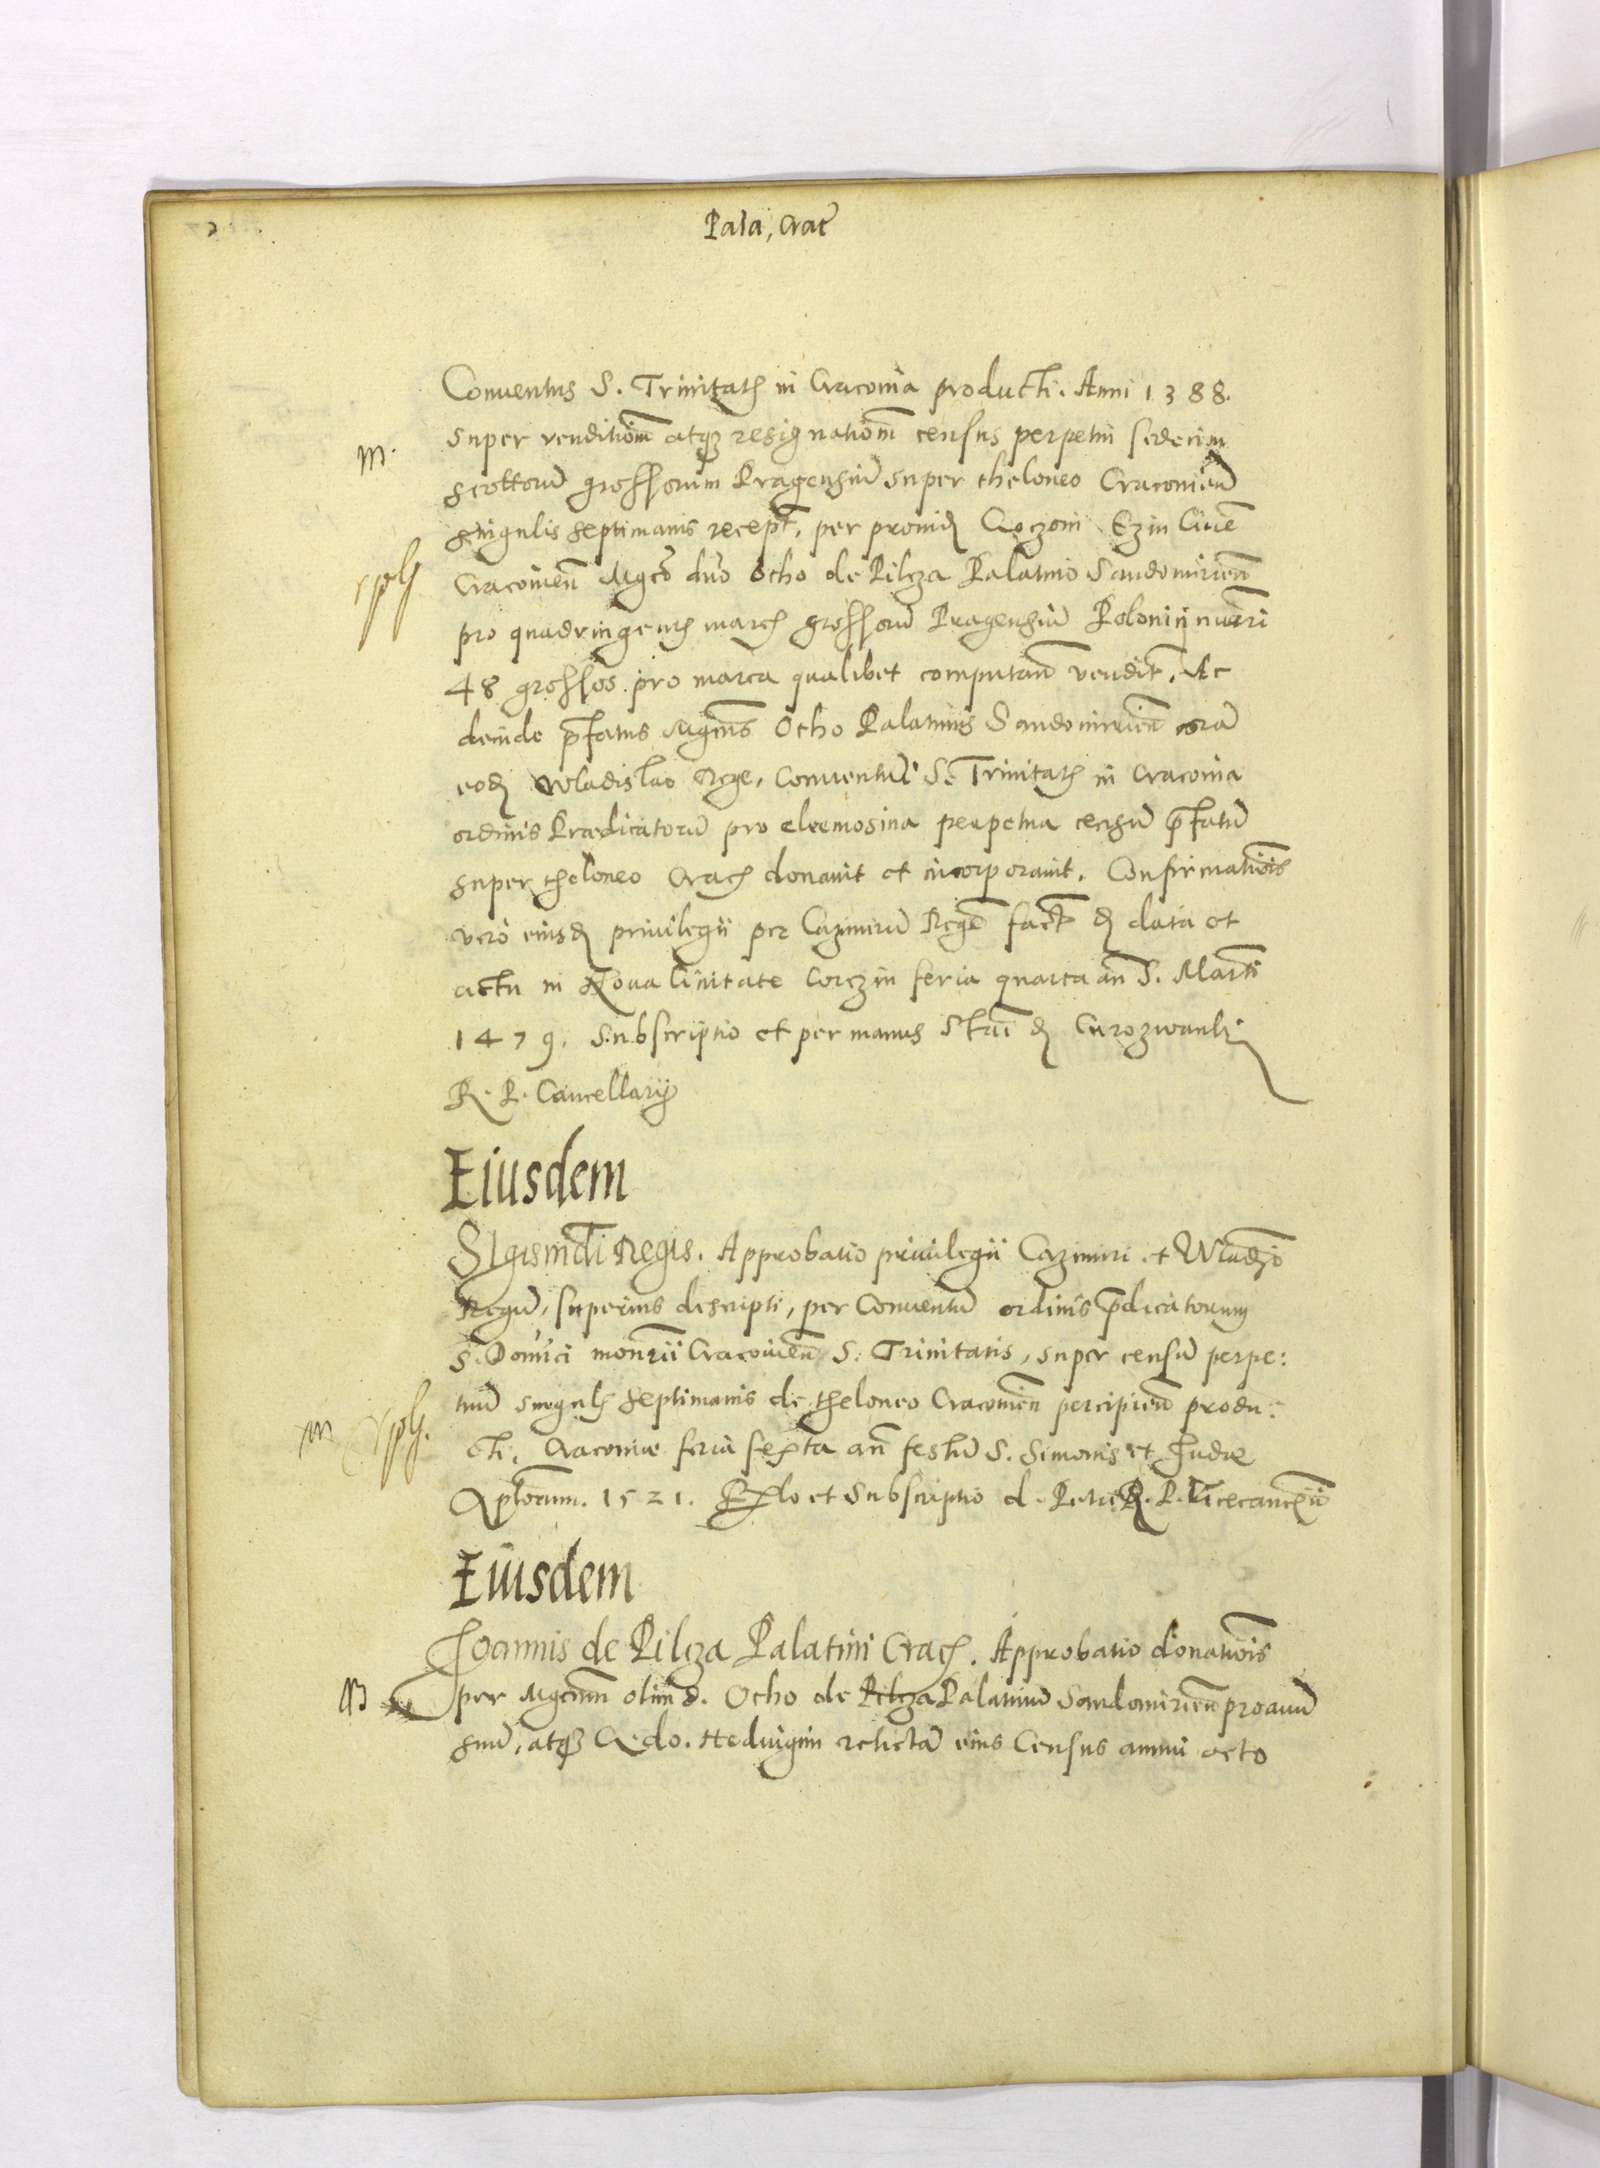 Pala, Crac̃
Conuentus S. Trinitatꝭ in Cracouia producti. Anni 1388.
super venditionẽ atqꝫ resignationẽ census perpetui sedecim
m.
scottorũ grossorum Pragensiũ super theloneo Cracouieñ
singulis septimanis recept̃, per prouid Ezin Ciuẽ
Cracouieñ Mg̃co dño Otho de Pilcza Palatino Sandomirieñ
pro quadringentꝭ marcꝭ grossorũ Pragensiũ Polonici nuẽri
48 grossos pro marca qualibet computanď vendit̃. Ac
deinde p̃fatus Mgc̃us Otho Palatinus Sandomirieñ corã
eod Wladislao Rege, Conuentui S. Trinitatꝭ in Cracouia
ordinis Prædicatorũ pro eleemosina perpetua censũ p̃fatũ
super theloneo Cracꝭ donauit et incorporauit. Confirmatiõis
vero eiusď priuilegii per Cazimirũ Regẽ fact̃ ď data et
actu in Noua Ciuitate Corczin feria quarta añ S. Marti
1479. Subscriptio et per manus Stãi ď Curozwanki
R. P. Cancellarij
Eiusdem
Sigismũdi Regis. Approbatio priuilegii Cazimiri et Wladĩo
Regũ, superius descripti, per Conuentũ ordinis p̃dicatorum
S. Domĩci monr̃ii Cracouieñ S. Trinitatis, super censũ perpe:
tuũ singulꝭ septimanis de theloneo Cracouieñ percipienď produ:
m
cti. Cracouiæ feria sexta añ festũ S. Simonis et Judæ
Ap̃lorum. 1521. Rel̃o et Subscriptio d. Petri R. P. Vicecancell̃ii
Eiusdem
Joannis de Pilcza Palatini Cracꝭ. Approbatio donatiõis
per Mgc̃um olim d. Otho de Pilcza Palatinũ Sandomirieñ proauũ
suũ, atqꝫ do. Heduigim relictã eius Census annui octo